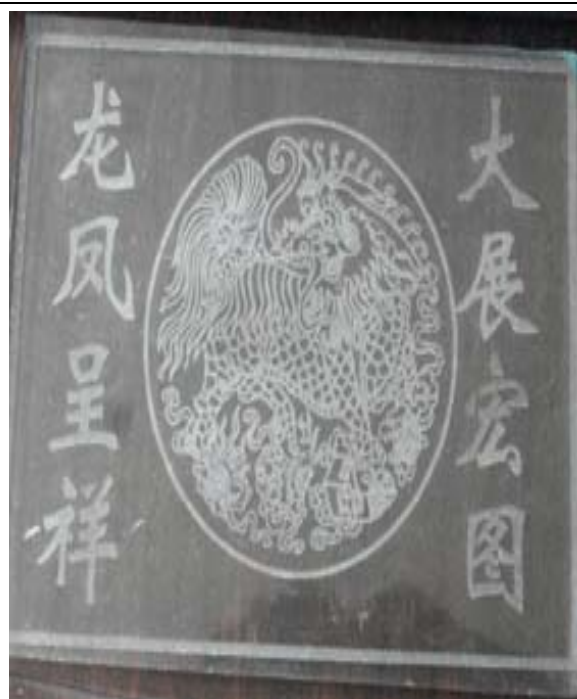 大展宏图
龙凤呈祥